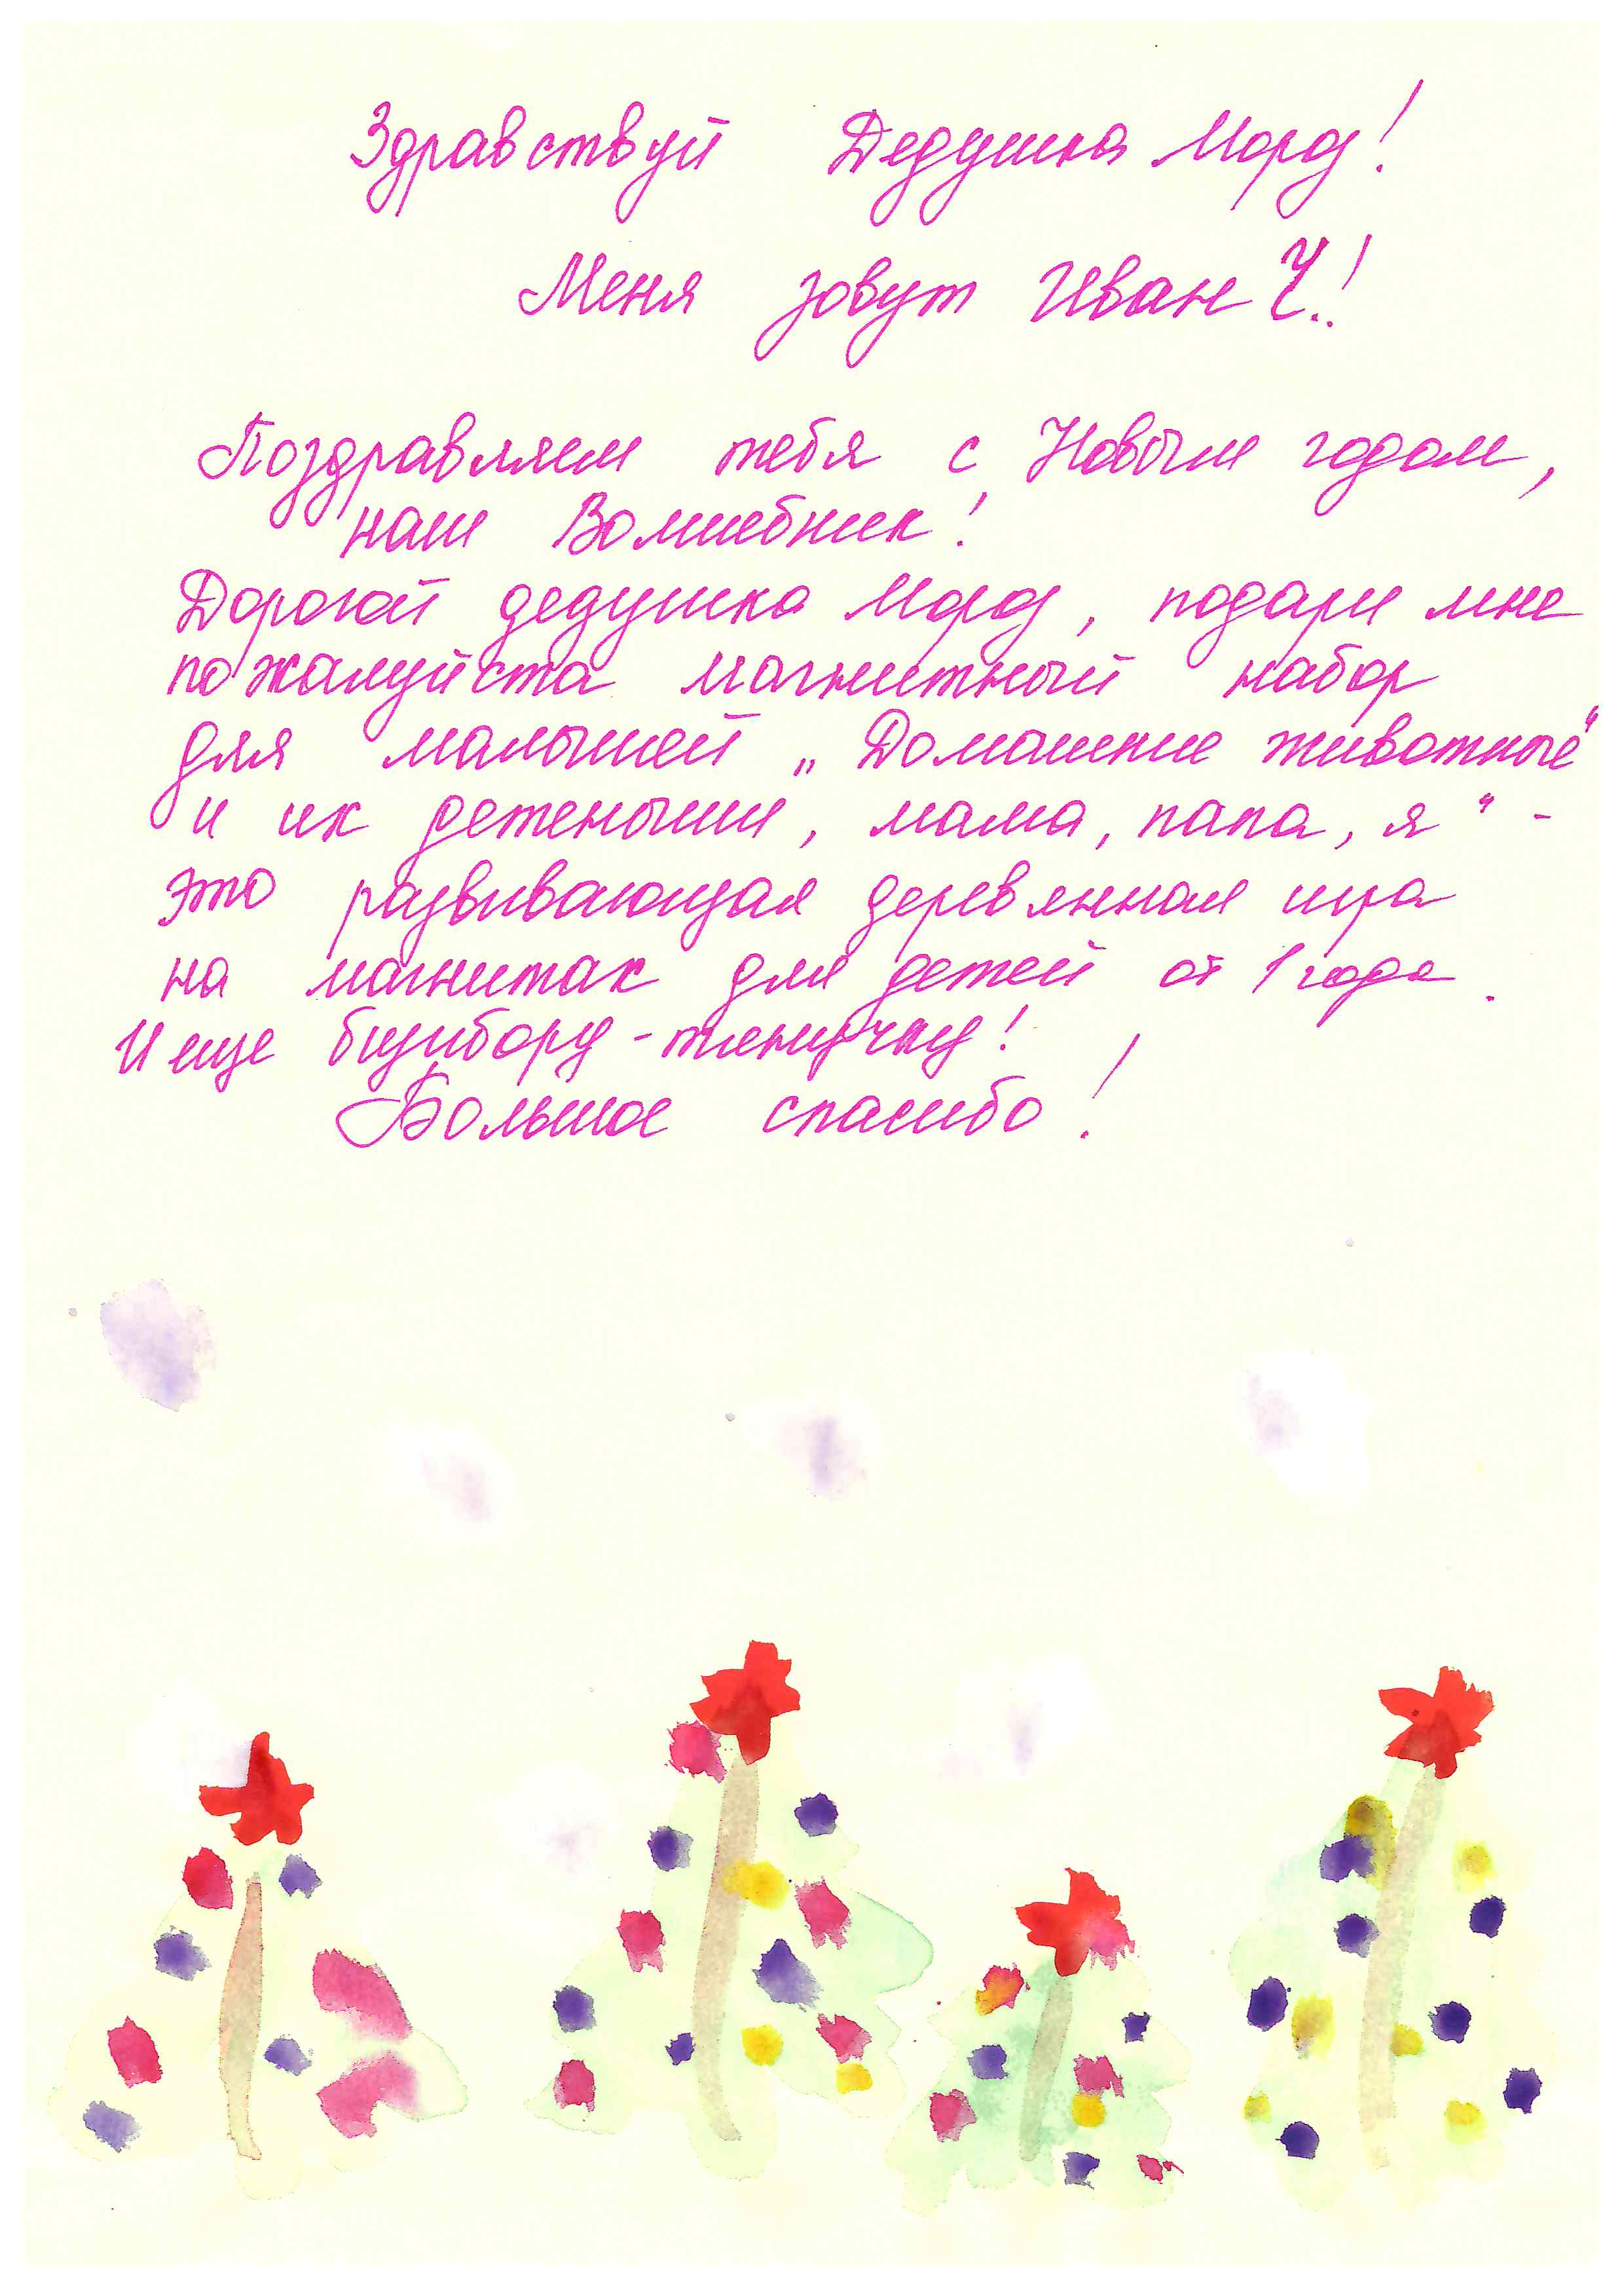 Здравствуй Дедушка Мороз!
Меня зовут Иван Ч.!
Поздравляем тебя с Новым годом,
наш Волшебник!
Дорогой дедушка Мороз, подари мне
пожалуйста магнитный набор
для малышей „Домашние животные"
и их детеныши, мама, папа, я" -
это развивающая деревянная игра
на магнитах для детей от 1 года.
И еще бизиборд-пленучку!
Большое спасибо!